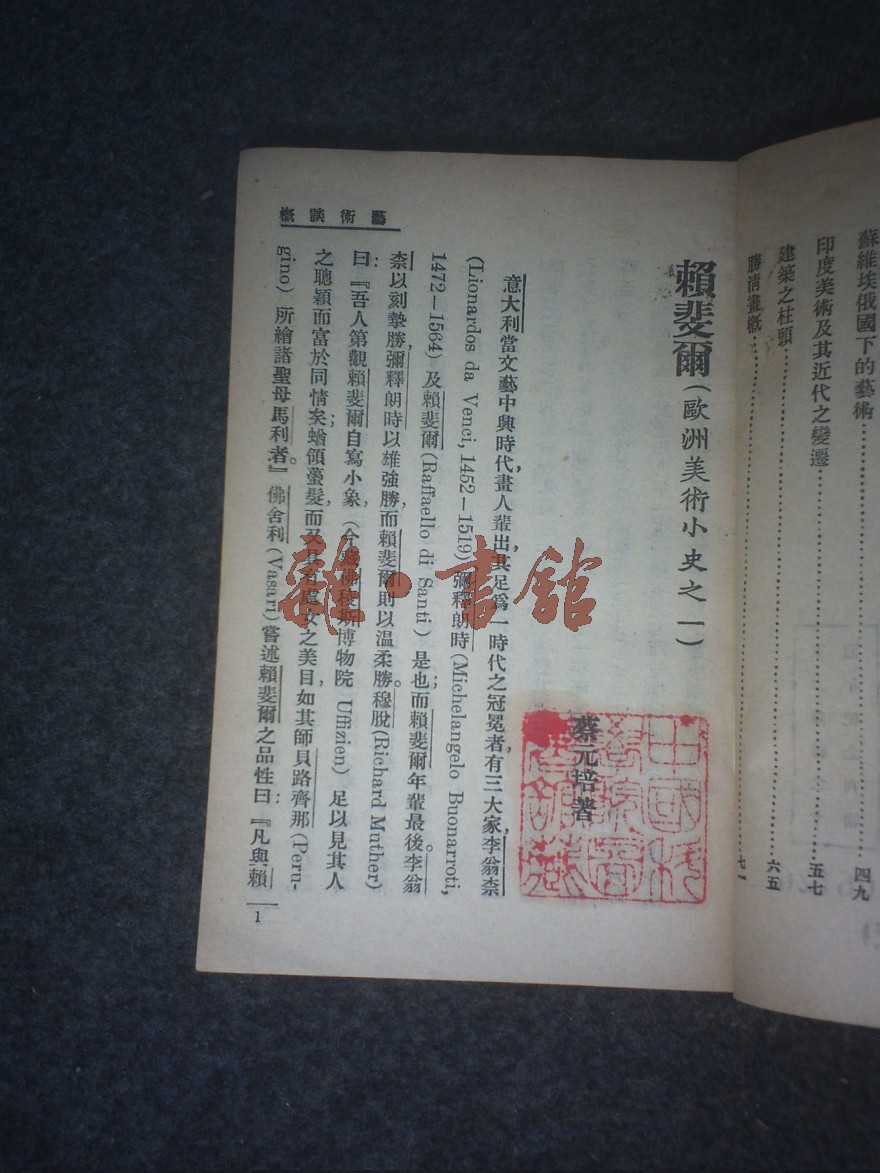 蘇維埃俄國下的藝術……四九
印度美術及其近代之變遷……五七
建築之柱頭……六五
勝清畫概……七一
賴斐爾(歐洲美術小史之一)
蔡元培著
意大利當文藝中興時代,畫人輩出,其足爲一時代之冠冕者,有三大家,李翁柰
(Lionardos da Venci, 1452—1519)彌釋朗時(Michelangelo Buonarroti,
1472—1564)及賴斐爾(Raffaello di Santi)是也,而賴斐爾年輩最後。李翁
柰以刻摯勝,彌釋朗時以雄強勝,而賴斐爾則以溫柔勝。穆脫(Richard Muther)
曰:『吾人第觀賴斐爾自寫小象,(今藏佛稜斯博物院 Uffizien)足以見其人
之聰穎而富於同情矣;蝤領蠆髮,而又具有處女之美目,如其師貝路齊那(Peru-
gino)所繪諸聖母馬利者。』佛舍利(Vasari)嘗述賴斐爾之品性曰:『凡與賴
藝術談概
1
雜·書館